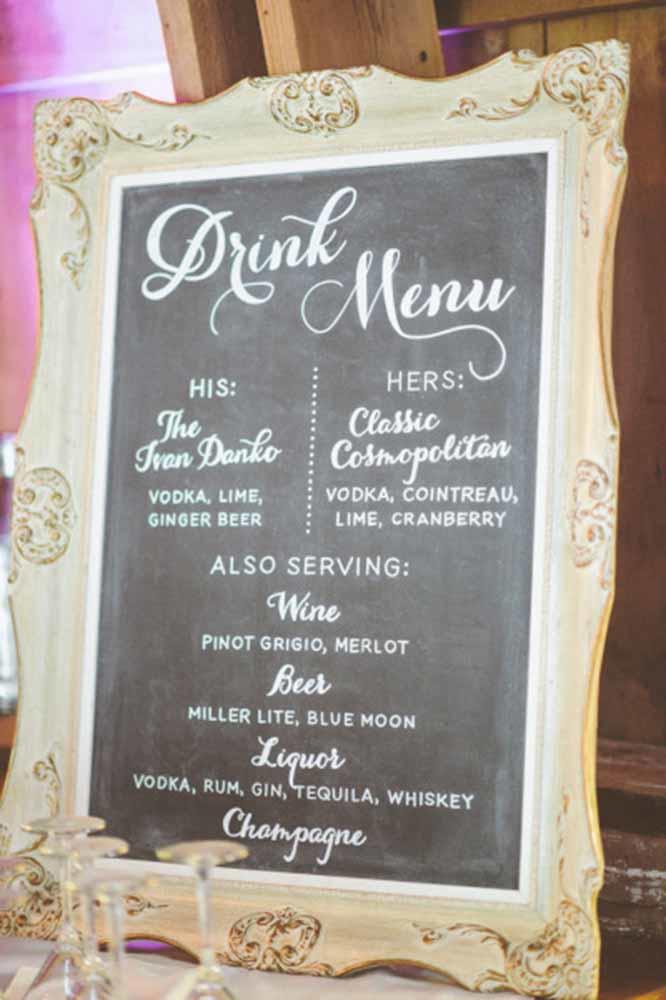 Drink
Menu
HIS:
The
Ivan Danko
VODKA, LIME,
GINGER BEER
HERS:
Classic
Cosmopolitan
VODKA, COINTREAU,
LIME, CRANBERRY
ALSO SERVING:
Wine
PINOT GRIGIO, MERLOT
Beer
MILLER LITE, BLUE MOON
Liquor
VODKA, RUM, GIN, TEQUILA, WHISKEY
Champagne